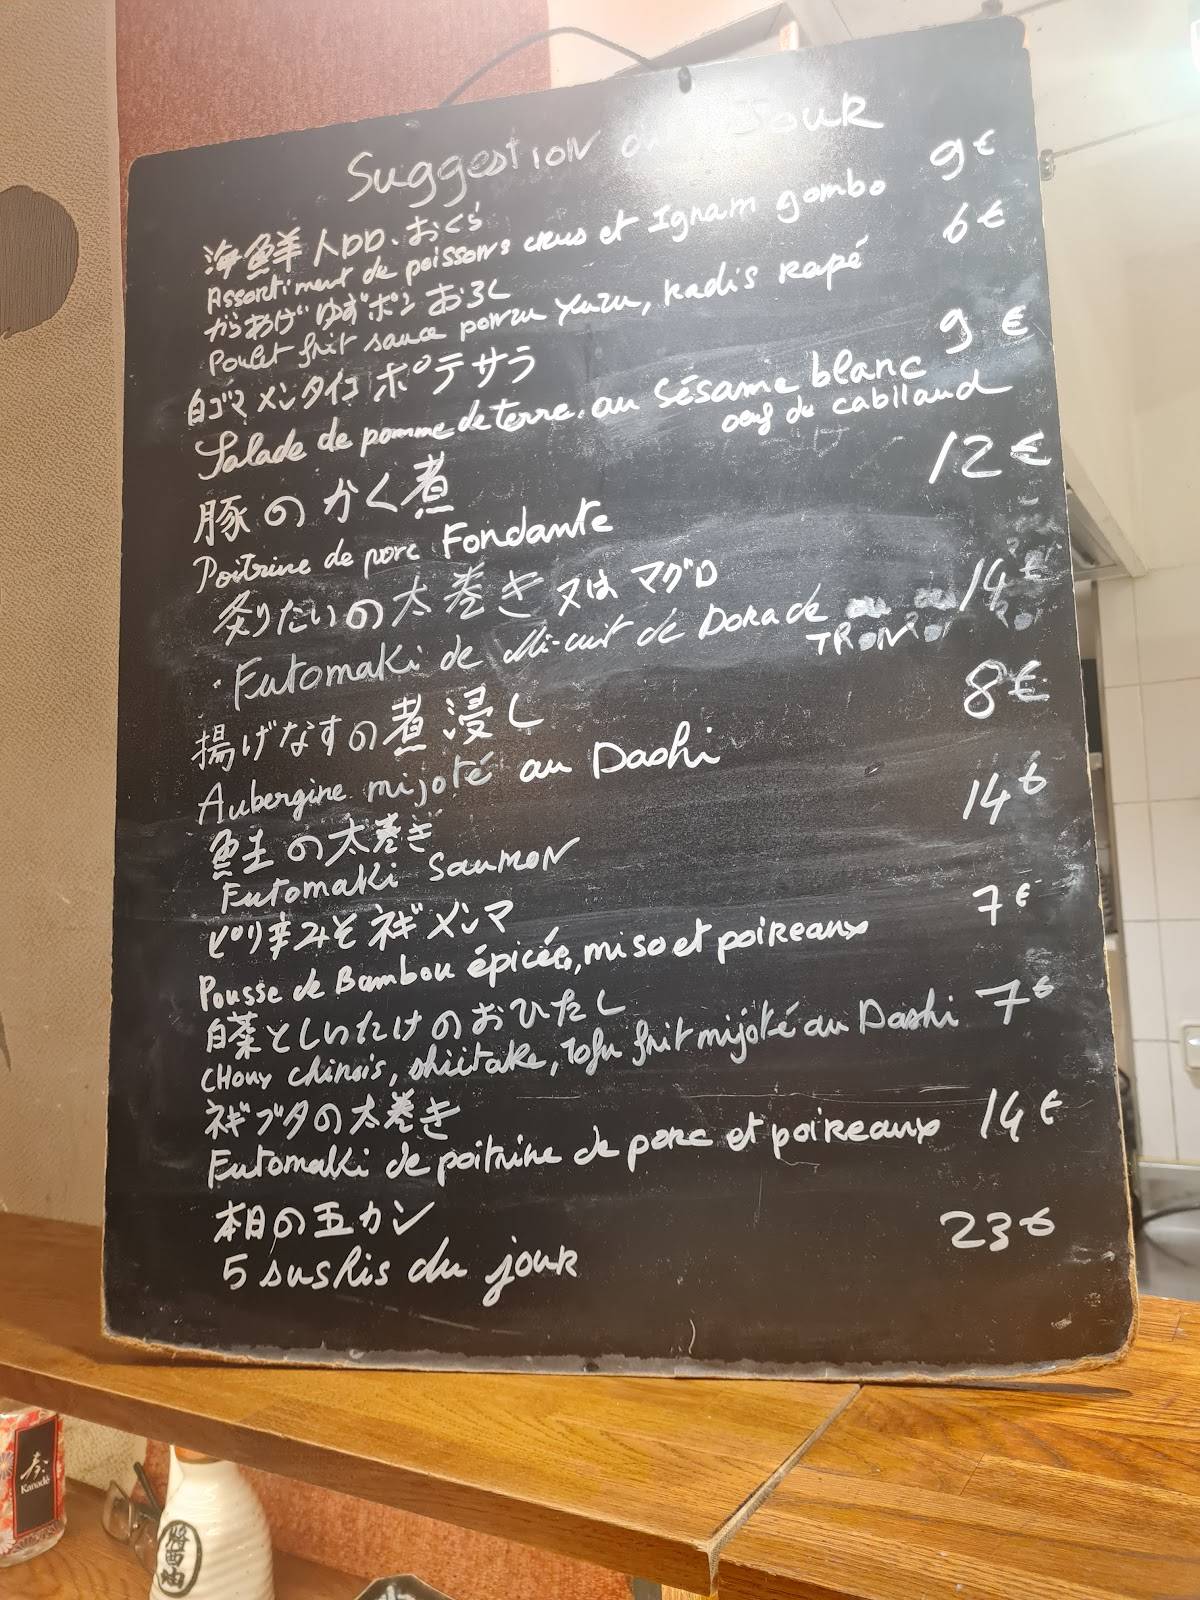 Suggestion du Jour
海鮮 おくら
Assortiment de poissons crus et Ignam gombo 9€
からあげ ゆずポン おろし
Poulet frit sauce ponzu yuzu, radis rapé 6€
白ゴマ メンタイコ ポテサラ
Salade de pomme de terre, au sésame blanc 9€
oeuf de cabillaud
豚のかく煮 12€
Poitrine de porc Fondante
炙りたいの太巻き 又は マグロ
Futomaki de Mi-cuit de Dorade 14€
揚げなすの煮浸し 8€
Aubergine mijoté au Dashi
鮭の太巻き 14€
Futomaki Saumon
ピリ辛みそ ネギ メンマ 7€
Pousse de Bambou épicée, miso et poireaux
白菜としいたけのおひたし
CHoux chinois, shiitake, Tofu frit mijoté au Dashi 7€
ネギブタの太巻き
Futomaki de poitrine de porc et poireaux 14€
本日の五カン 23€
5 sushis du jour
Kanadé